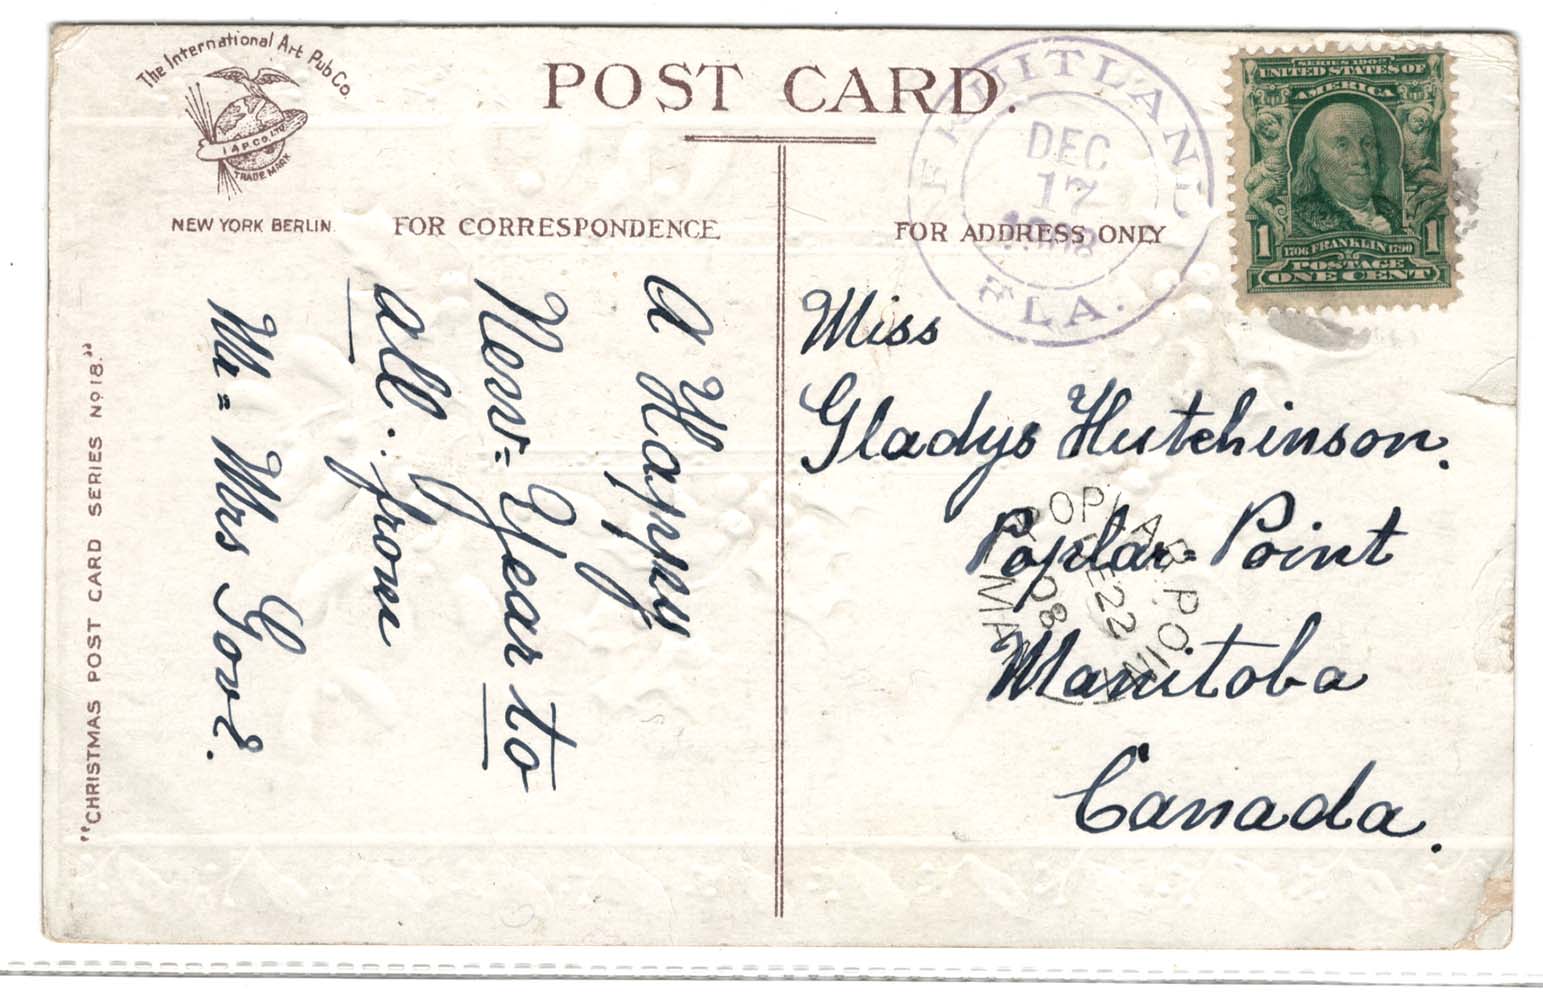 The International Art Pub Co.
I.A.P.Co. LTD
TRADE MARK
NEW YORK BERLIN.
POST CARD.
FOR CORRESPONDENCE
FOR ADDRESS ONLY
FRUITLAND
DEC
17
1908
FLA.
SERIES 1902
UNITED STATES OF
AMERICA
1706 FRANKLIN 1790
1 1
POSTAGE
ONE CENT
A Happy
New=Year to
all. from
Mr = Mrs
Miss
Gladys Hutchinson.
Poplar=Point
Manitoba
Canada.
POPLAR POINT
DE 22
08
MAN
"CHRISTMAS POST CARD SERIES No 18."